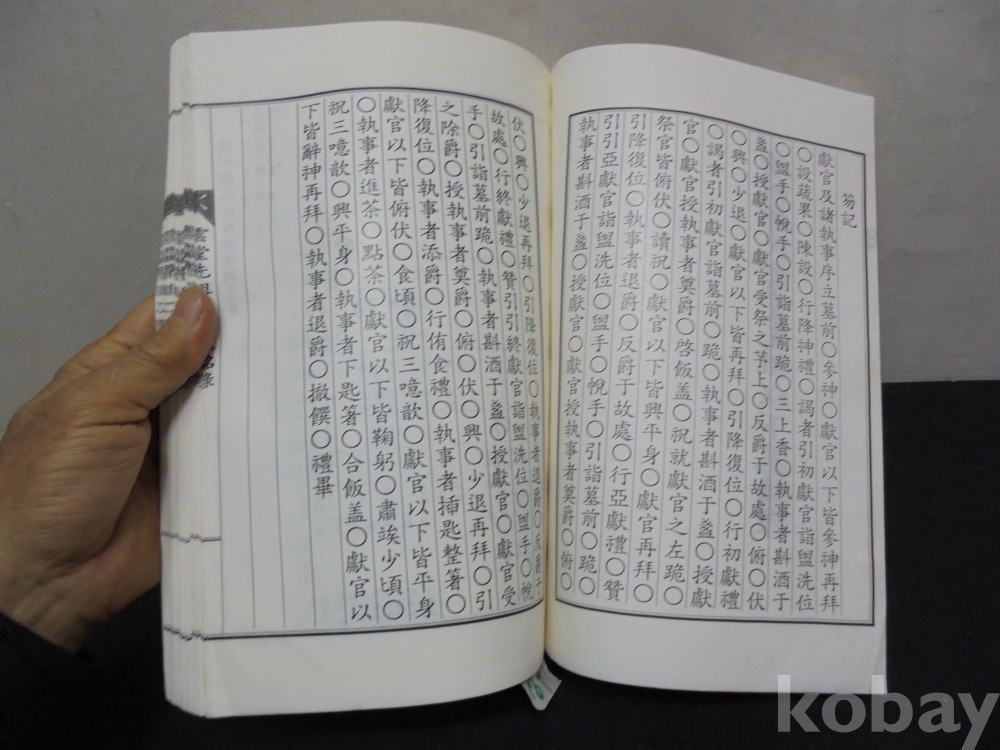 笏記
獻官及諸執事序立墓前○參神○獻官以下皆參神再拜
○設蔬果○陳設○行降神禮○謁者引初獻官詣盥洗位
○盥手○帨手○引詣墓前跪○三上香○執事者斟酒于
盞○授獻官○獻官受祭之茅上○反爵于故處○俯○伏
○興○少退○獻官以下皆再拜○引降復位○行初獻禮
○謁者引初獻官詣墓前○跪○執事者斟酒于盞○授獻
官○獻官授執事者奠爵○啓飯盖○祝就獻官之左跪○
祭官皆俯伏○讀祝○獻官以下皆興平身○獻官再拜○
引降復位○執事者退爵○反爵于故處○行亞獻禮○贊
引引亞獻官詣盥洗位○盥手○帨手○引詣墓前○跪○
執事者斟酒于盞○授獻官○獻官授執事者奠爵○俯○
伏○興○少退再拜○引降復位○執事者退爵○反爵于
故處○行終獻禮○贊引引終獻官詣盥洗位○盥手○帨
手○引詣墓前跪○執事者斟酒于盞○授獻官○獻官受
之除爵○授執事者奠爵○俯○伏○興○少退再拜○引
降復位○執事者添爵○行侑食禮○執事者揷匙整箸○
獻官以下皆俯伏○食頃○祝三噫歆○獻官以下皆平身
○執事者進茶○點茶○獻官以下皆鞠躬○肅竢少頃○
祝三噫歆○興平身○執事者下匙箸○合飯盖○獻官以
下皆辭神再拜○執事者退爵○撤饌○禮畢
雲堂先
kobay